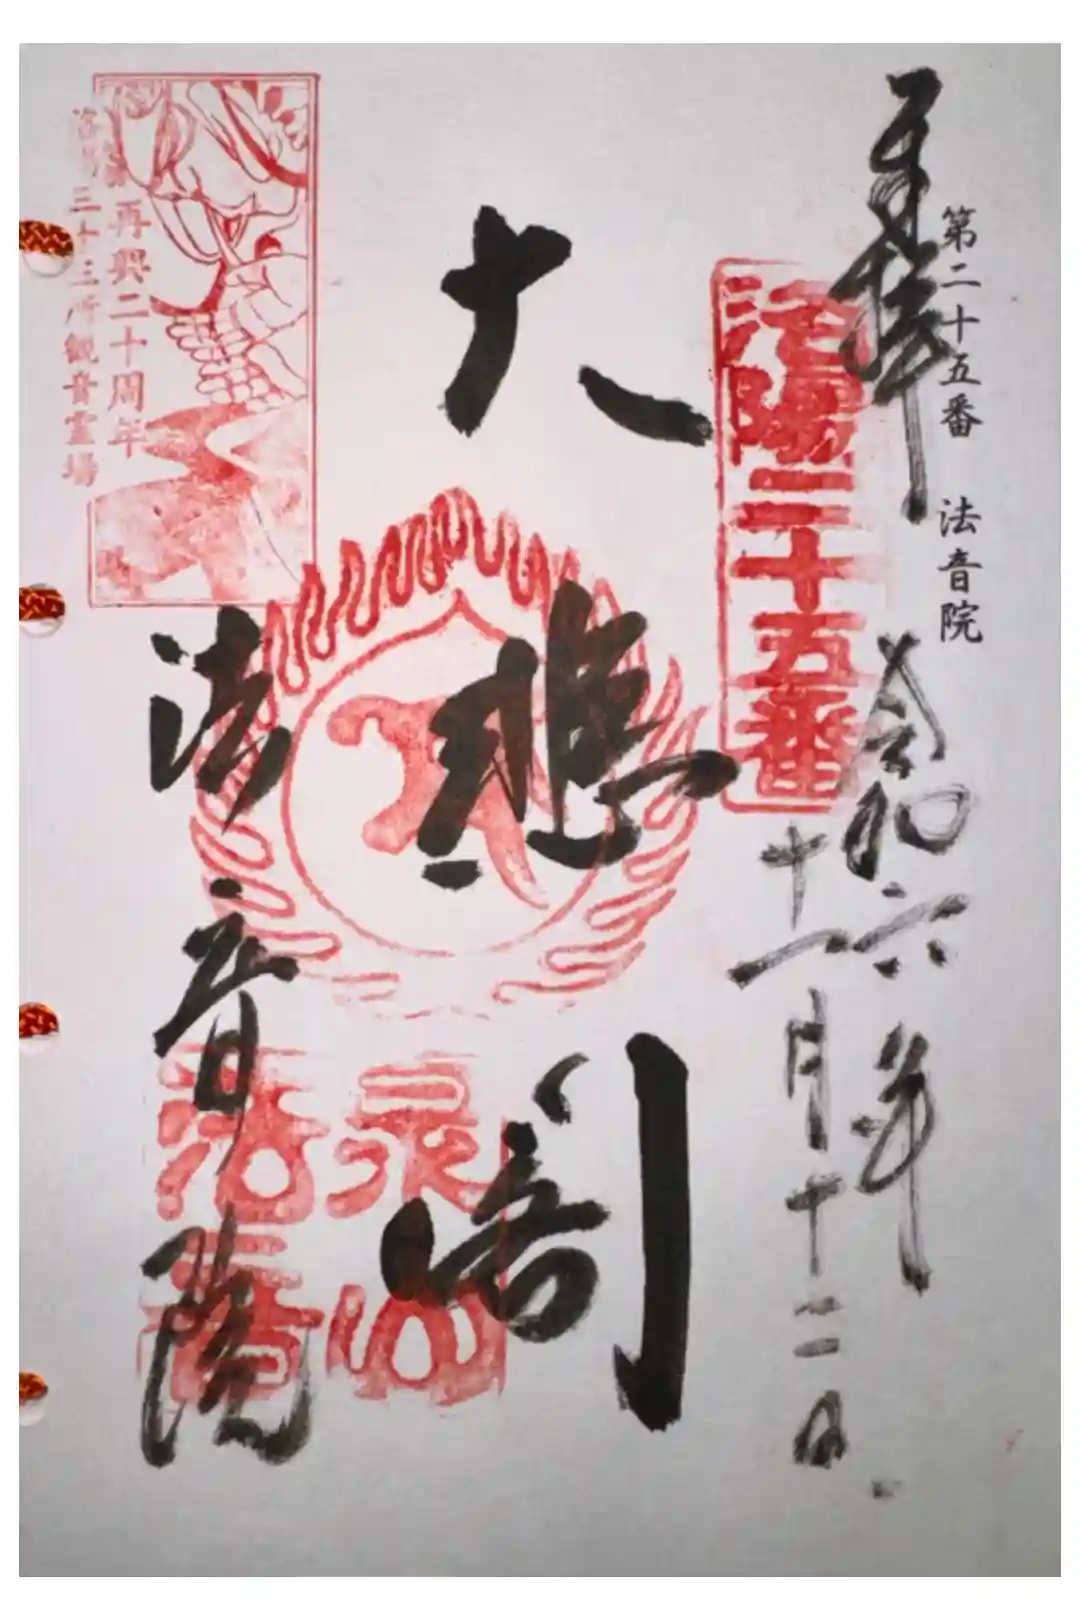 第二十五番 法音院
奉拝
令和六年
十一月十二日
洛陽二十五番
大悲閣
法音院
泉山
法音
再興二十周年
洛陽三十三所観音霊場